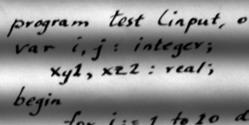 program test (input, o
var i, j : integer;
xy1, xz2 : real;
begin
for i:= 1 to 20 d